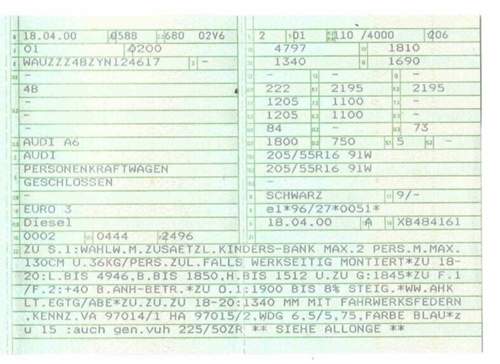 18.04.00 0588 680 02V6
01 0200
WAUZZZ4BZYN124617 -
-
4B
-
-
AUDI A6
AUDI
PERSONENKRAFTWAGEN
GESCHLOSSEN
-
EURO 3
Diesel
0002 0444 2496
2 01 110 /4000 206
4797 1810
1340 1690
- - -
222 2195 2195
1205 1100 -
1205 1100 -
84 - 73
1800 750 5 -
205/55R16 91W
205/55R16 91W
-
-
SCHWARZ 9/-
e1*96/27*0051*
18.04.00 A XB484161
ZU S.1:WAHLW.M.ZUSAETZL.KINDERS-BANK MAX.2 PERS.M.MAX.
130CM U.36KG/PERS.ZUL.FALLS WERKSEITIG MONTIERT*ZU 18-
20:L.BIS 4946,B.BIS 1850,H.BIS 1512 U.ZU G:1845*ZU F.1
/F.2:+40 B.ANH-BETR.*ZU O.1:1900 BIS 8% STEIG.*WW.AHK
LT.EGTG/ABE*ZU.ZU.ZU 18-20:1340 MM MIT FAHRWERKSFEDERN
,KENNZ.VA 97014/1 HA 97015/2,WDG 6,5/5,75,FARBE BLAU*z
u 15 :auch gen.vuh 225/50ZR ** SIEHE ALLONGE **